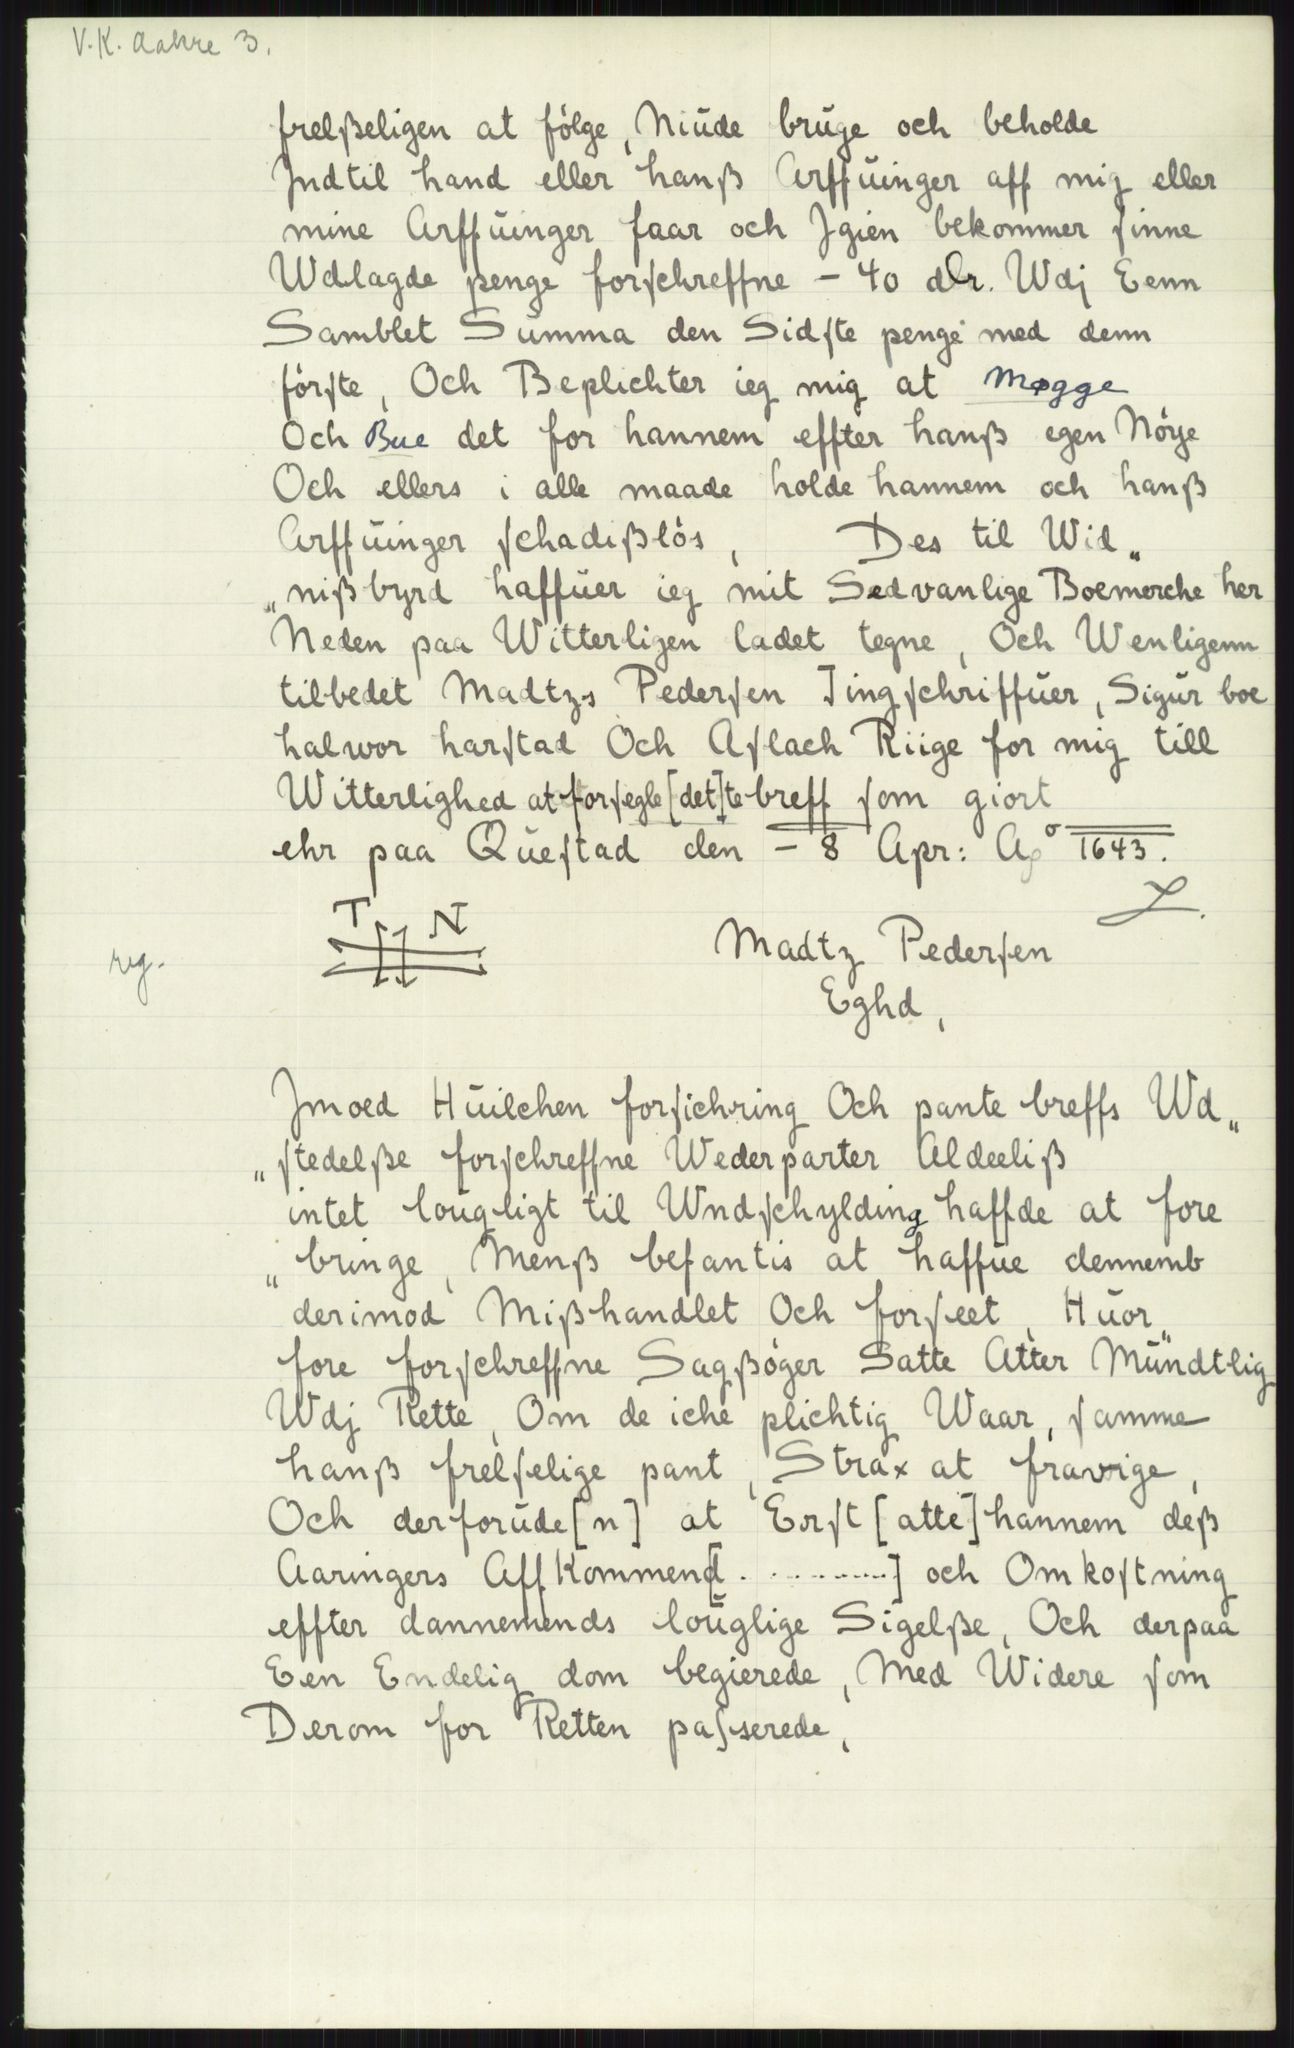 V.K. Aakre 3.
frelßeligen at følge, Niüde brüge och beholde
Jndtil hand eller hanß Arffüinger aff mig eller
mine Arffüinger faar och Jgien bekommer sinne
Wdlagde penge forschreffne - 40 dlr. Wdj Eenn
Samblet Summa den Sidste penge med denn
förste, Och Beplichter ieg mig at Møgge
Och Bue det for hannem effter hanß egen Nöye
Och ellers i alle maade holde hannem och hanß
Arffüinger schadißlös, Des til Wid„
„nißbyrd haffüer ieg mit Sedvanlige Boemerche her
Neden paa Witterligen ladet tegne, Och Wenligenn
tilbedet Madtzs Pedersen Tingschriffüer, Sigür boe
halwor harstad Och Aslach Riige for mig till
Witterlighed at forsegle [det]te breff som giort
ehr paa Questad den - 8 Apr: Ao 1643.
T N
reg.
Madtz Pedersen
Eghd,
Jmoed Hüilchen forsichring Och pante breffs Wd„
„stedelße forschreffne Wederparter Aldeeliß
intet loügligt til Wndschylding haffde at fore
„bringe, Menß befantis at haffüe dennemb
derimod Mißhandlet Och forseet, Hüor„
fore forschreffne Sagßöger Satte Atter Mündtlig
Wdj Rette, Om de iche plichtig Waar, samme
hanß frelselige pant, Strax at fravige,
Och derforüde[n] at Erst[atte] hannem deß
Aaringers Aff Kommend[.........] och Omkostning
effter dannemends loüglige Sigelße, Och derpaa
Een Endelig dom begierede, Med Widere som
Derom for Retten passerede,